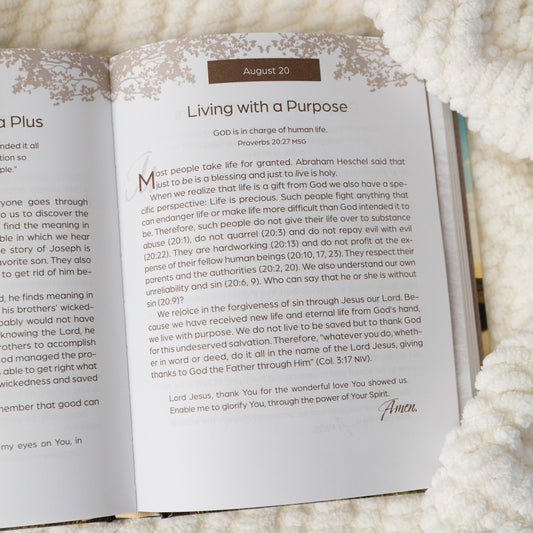 a Plus
nded it all
tion so
ple."
yone goes through
o us to discover the
find the meaning in
ble in which we hear
e story of Joseph is
avorite son. They also
to get rid of him be-
d, he finds meaning in
his brothers' wicked-
bably would not have
knowing the Lord, he
rothers to accomplish
od managed the pro-
able to get right what
wickedness and saved
member that good can
my eyes on You, in
August 20
Living with a Purpose
GOD is in charge of human life.
Proverbs 20:27 MSG
Most people take life for granted. Abraham Heschel said that
just to be is a blessing and just to live is holy.
When we realize that life is a gift from God we also have a spe-
cific perspective: Life is precious. Such people fight anything that
can endanger life or make life more difficult than God intended it to
be. Therefore, such people do not give their life over to substance
abuse (20:1), do not quarrel (20:3) and do not repay evil with evil
(20:22). They are hardworking (20:13) and do not profit at the ex-
pense of their fellow human beings (20:10, 17, 23). They respect their
parents and the authorities (20:2, 20). We also understand our own
unreliability and sin (20:6, 9). Who can say that he or she is without
sin (20:9)?
We rejoice in the forgiveness of sin through Jesus our Lord. Be-
cause we have received new life and eternal life from God's hand,
we live with purpose. We do not live to be saved but to thank God
for this undeserved salvation. Therefore, "whatever you do, wheth-
er in word or deed, do it all in the name of the Lord Jesus, giving
thanks to God the Father through Him" (Col. 3:17 NIV).
Lord Jesus, thank You for the wonderful love You showed us.
Enable me to glorify You, through the power of Your Spirit.
Amen.